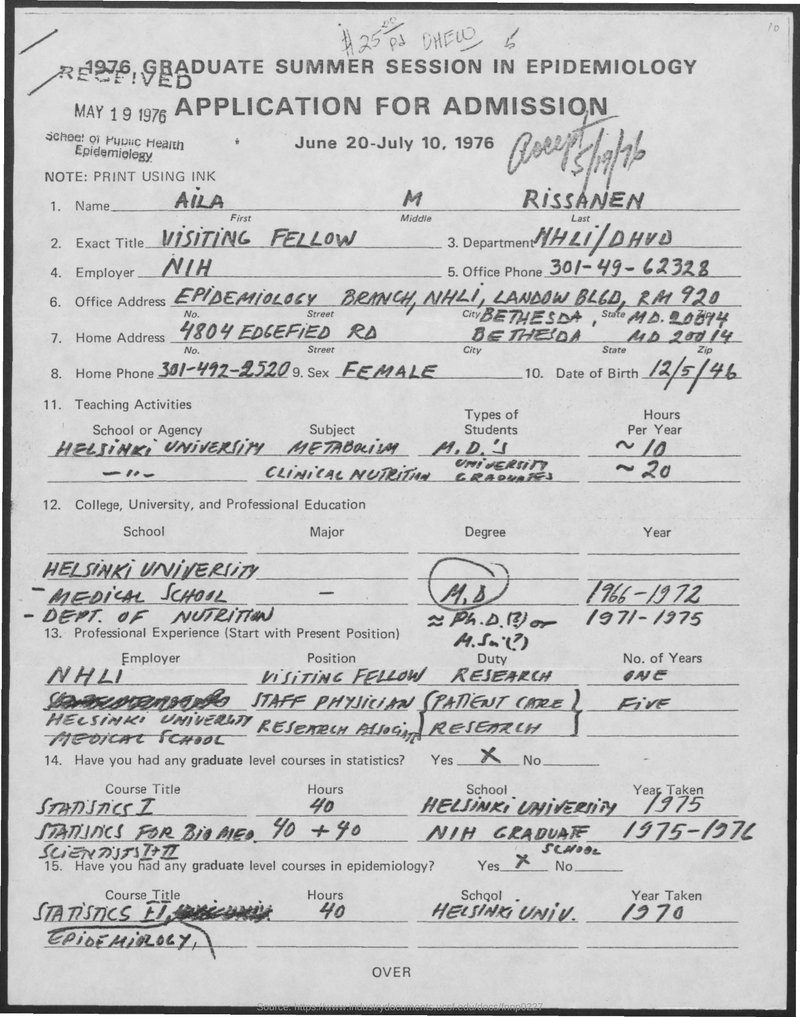 $ 25.00 pd DHEW 5 10
1976 GRADUATE SUMMER SESSION IN EPIDEMIOLOGY
RECEIVED
MAY 19 1976 APPLICATION FOR ADMISSION
School of Public Health
Epidemiology
June 20-July 10, 1976 Accept 5/19/76
NOTE: PRINT USING INK
1. Name AILA M RISSANEN
First Middle Last
2. Exact Title VISITING FELLOW 3. Department NHLI/DHVD
4. Employer NIH 5. Office Phone 301-49-62328
6. Office Address EPIDEMIOLOGY BRANCH, NHLI, LANDOW BLGD, RM 920
No. Street City BETHESDA, State MD. 20014 Zip
7. Home Address 4804 EDGEFIED RD BETHESDA MD 20014
No. Street City State Zip
8. Home Phone 301-492-2520 9. Sex FEMALE 10. Date of Birth 12/5/46
11. Teaching Activities
School or Agency Subject Types of Students Hours Per Year
HELSINKI UNIVERSITY METABOLISM M.D.'S ~ 10
—"— CLINICAL NUTRITION UNIVERSITY GRADUATES ~ 20
12. College, University, and Professional Education
School Major Degree Year
HELSINKI UNIVERSITY
- MEDICAL SCHOOL — M.D 1966-1972
- DEPT. OF NUTRITION ≈ Ph.D.(?) or 1971-1975
M.Sc(?)
13. Professional Experience (Start with Present Position)
Employer Position Duty No. of Years
NHLI VISITING FELLOW RESEARCH ONE
STAFF PHYSICIAN { PATIENT CARE } FIVE
HELSINKI UNIVERSITY RESEARCH ASSOCIATE } RESEARCH
MEDICAL SCHOOL
14. Have you had any graduate level courses in statistics? Yes X No
Course Title Hours School Year Taken
STATISTICS I 40 HELSINKI UNIVERSITY 1975
STATISTICS FOR BIOMED. 40 + 40 NIH GRADUATE 1975-1976
SCIENTISTS I+II SCHOOL
15. Have you had any graduate level courses in epidemiology? Yes X No
Course Title Hours School Year Taken
STATISTICS II, 40 HELSINKI UNIV. 1970
EPIDEMIOLOGY,
OVER
Source: https://www.industrydocuments.ucsf.edu/docs/fnop0227